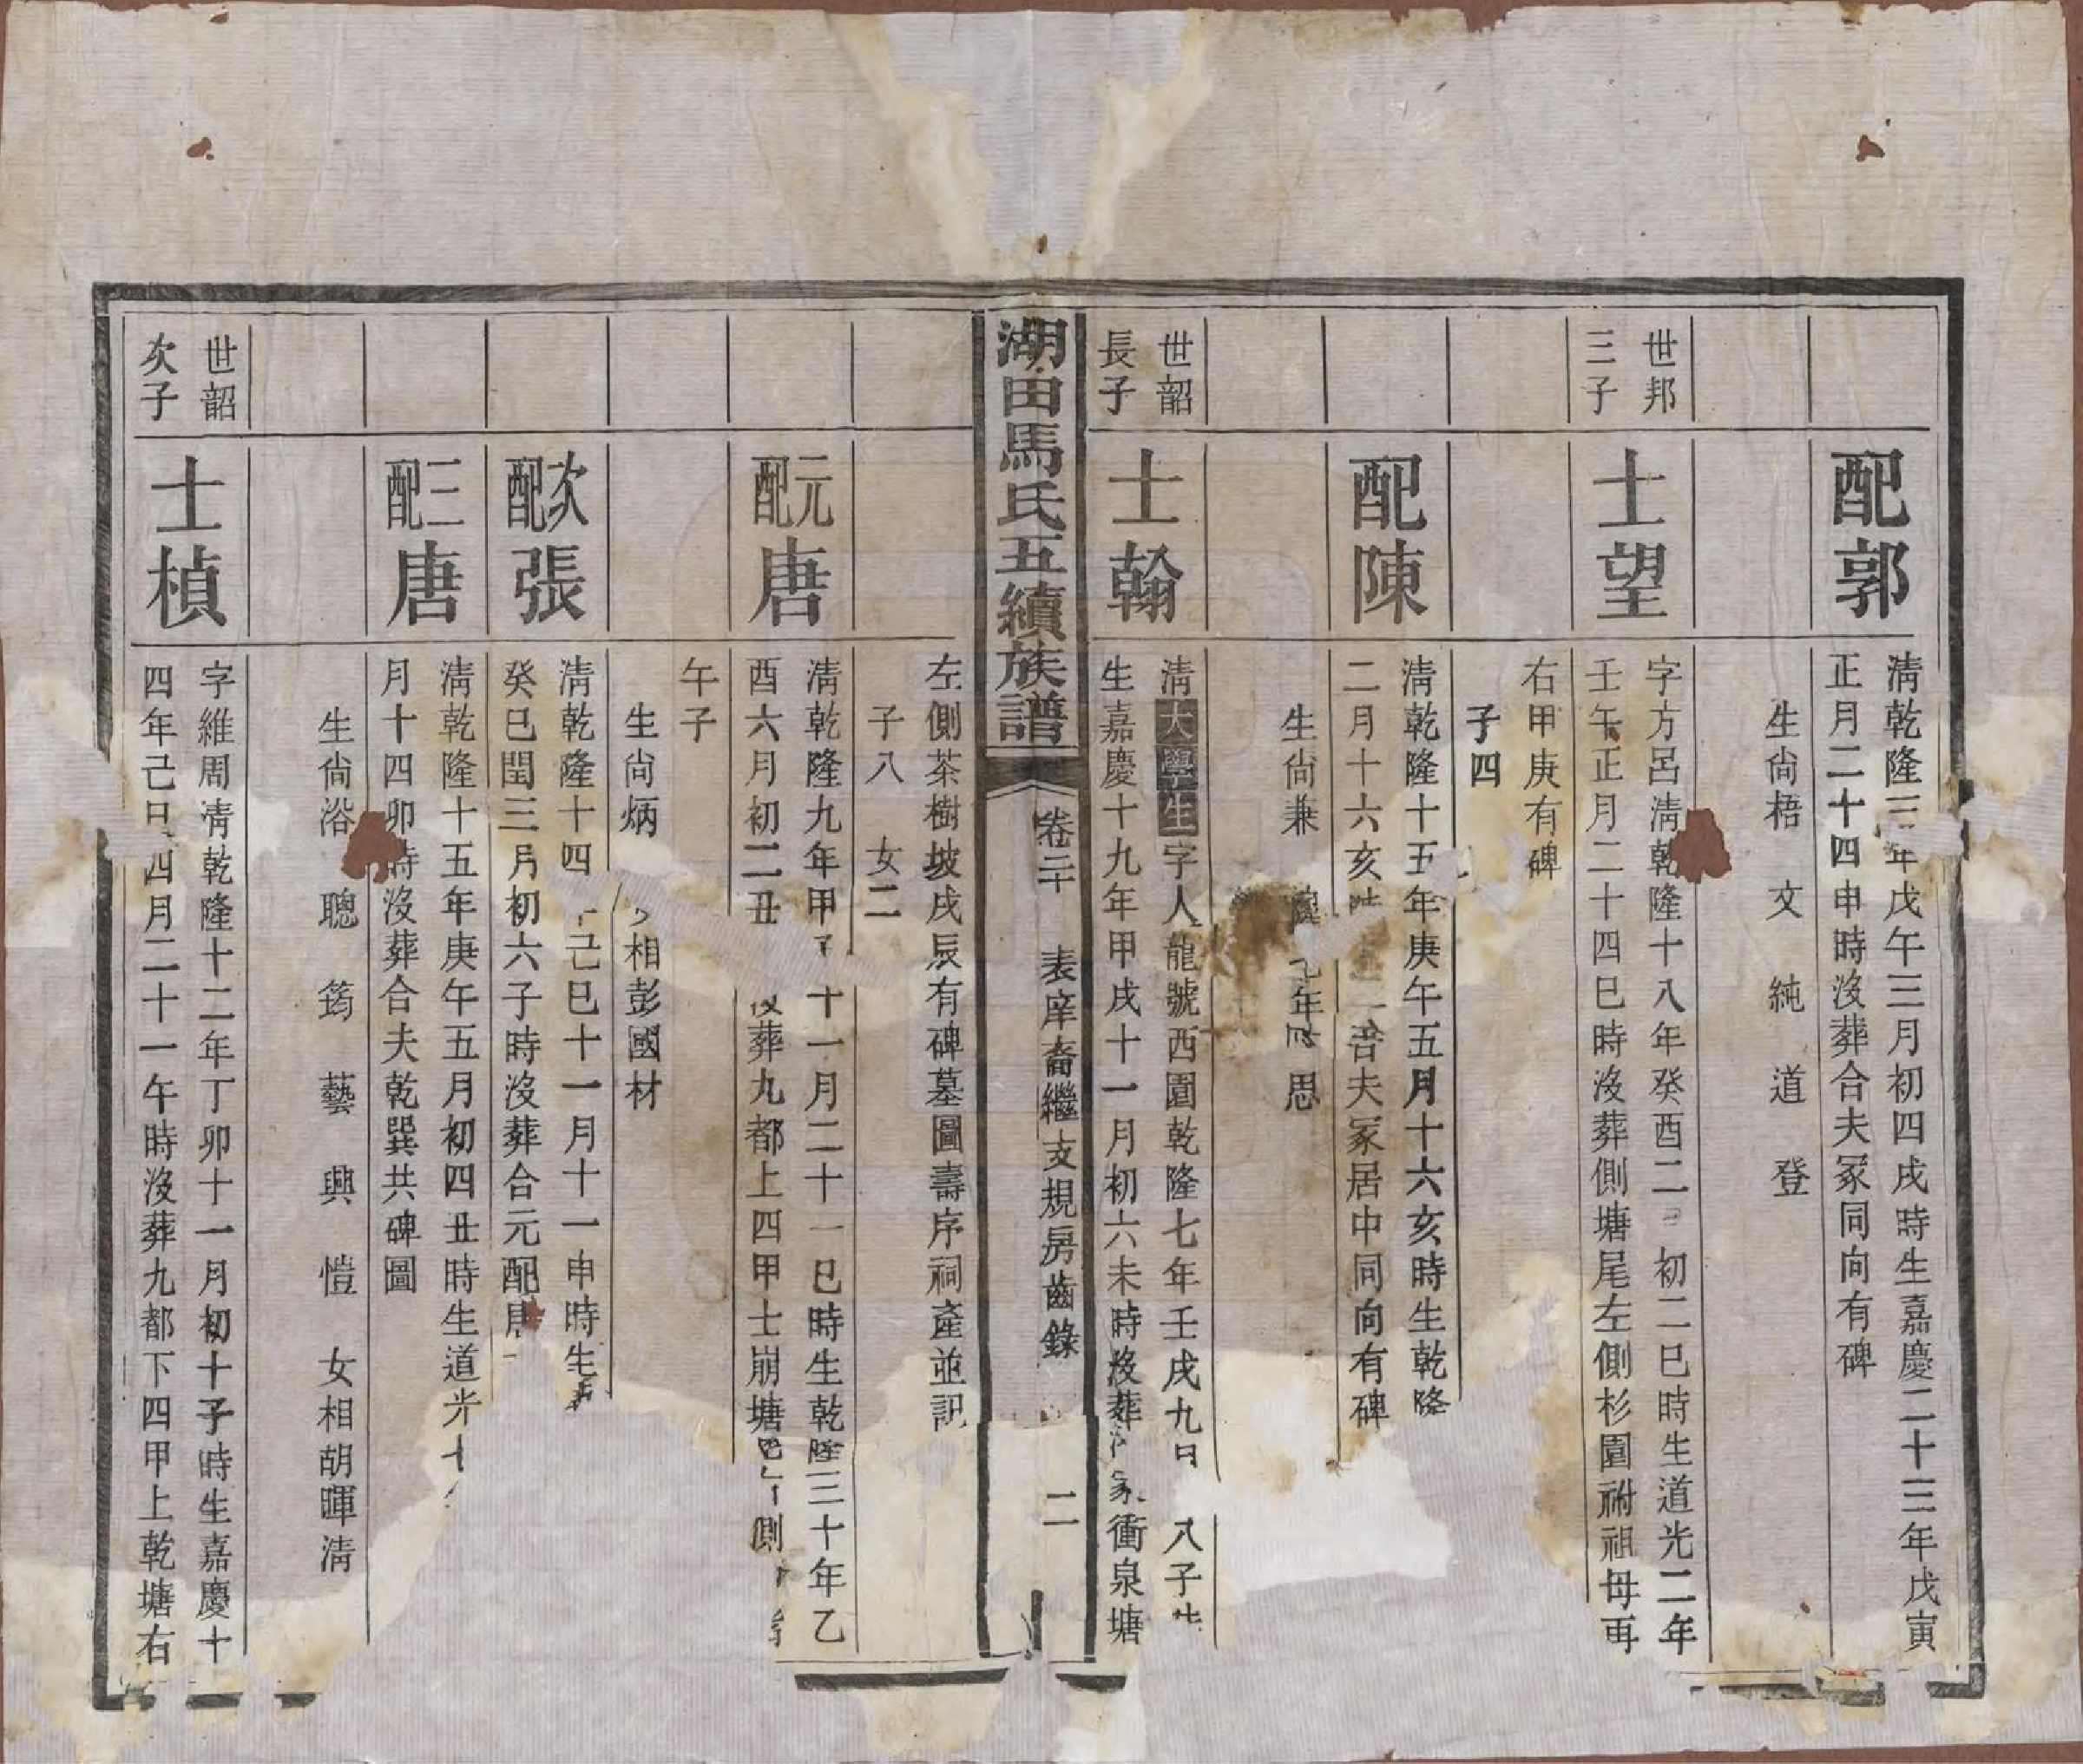 配郭
清乾隆三年戊午三月初四戌時生嘉慶二十三年戊寅
正月二十四申時沒葬合夫冢同向有碑
生尙梧 文 純 道 登
世邦
三子
士望
字方呂清乾隆十八年癸酉二 初二巳時生道光二年
壬午正月二十四巳時沒葬側塘尾左側杉園祔祖母再
右甲庚有碑
子四
配陳
清乾隆十五年庚午五月十六亥時生乾隆
二月十六亥 夫冢居中同向有碑
生尙兼 年 思
世韶
長子
士翰
清大學生字人龍號西園乾隆七年壬戌九月 八子
生嘉慶十九年甲戌十一月初六未時沒葬 家衝泉塘
湖田馬氏五續族譜
卷二 表庠裔繼支規房齒錄
二
左側茶樹坡戌辰有碑墓圖壽序祠產並記
子八 女二
元配唐
清乾隆九年甲子十一月二十一巳時生乾隆三十年乙
酉六月初二丑 沒葬九都上四甲士崩塘 側
午子
生尙炳 女相彭國材
次配張
清乾隆十四 己巳十一月十一申時生
癸巳閏三月初六子時沒葬合元配
三配唐
清乾隆十五年庚午五月初四丑時生道光七
月十四卯時沒葬合夫乾巽共碑圖
生尙浴 聰 筠 藝 興 愷 女相胡暉清
世韶
次子
士楨
字維周清乾隆十二年丁卯十一月初十子時生嘉慶十
四年己巳四月二十一午時沒葬九都下四甲上乾塘右